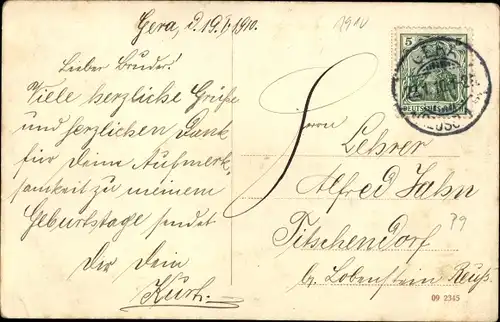 Gera, d. 19.1.1910.
1910
Lieber Bruder!
Viele herzliche Grüße
und herzlichen Dank
für Deine Aufmerk-
samkeit zu meinem
Geburtstage sendet
Dir Dein
Kurt.
5
GERA
DEUTSCHES REICH
Herrn
Lehrer
Alfred Jahn
Titschendorf
b/ Lobenstein Reuß.
P9
09 2345